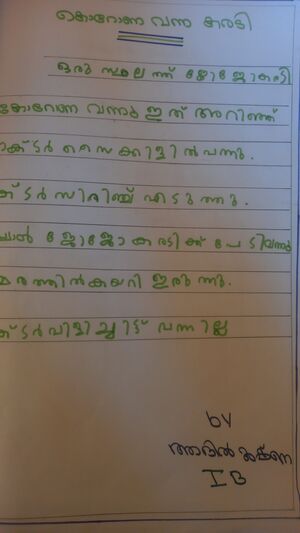 കൊറോണ വന്ന കരടി
ഒരു സ്ഥലത്ത് ജോജോകരടി
കോറോണ വന്നു ഇത് അറിഞ്ഞ്
ക്ടർ സൈക്കിളിൽ വന്നു.
ക്ടർ സിരിഞ്ച് എടുത്തു.
ജോജോ കരടിക്ക് പേടിവന്നു
മരത്തിൽ കയറി ഇരുന്നു.
ക്ടർ വിളിച്ചിട്ട് വന്നില്ല
by
I B